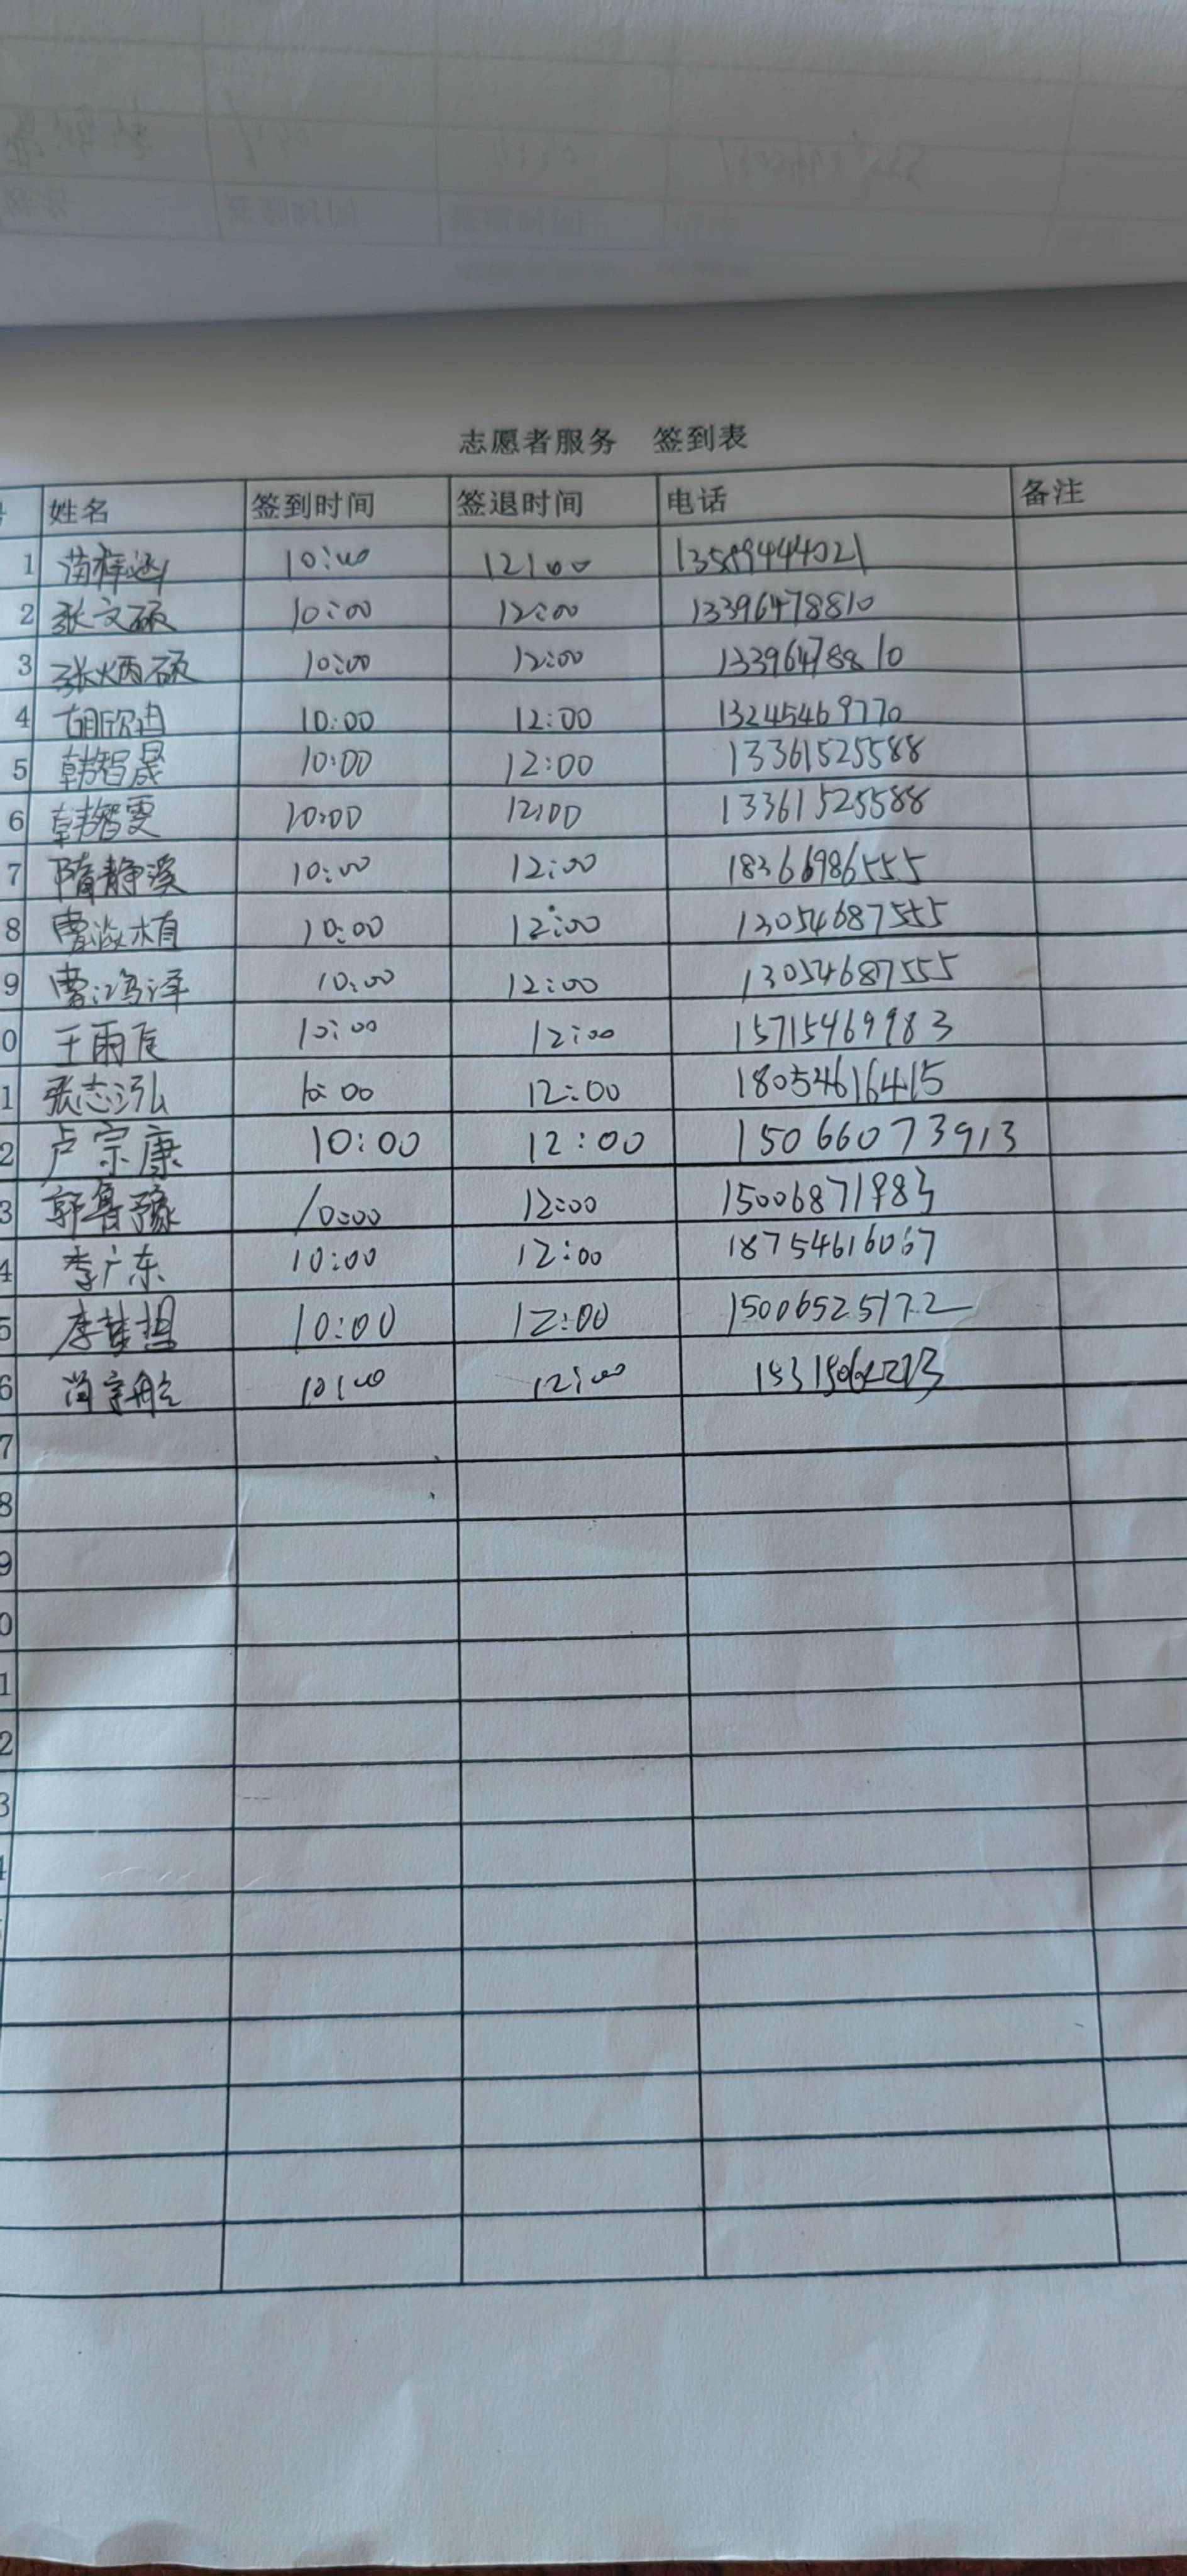 志愿者服务 签到表
姓名 签到时间 签退时间 电话 备注
1 苗梓涵 10:00 12:00 13589444021
2 张文硕 10:00 12:00 13396478810
3 张炳硕 10:00 12:00 13396478810
4 胡欣迪 10:00 12:00 13245469770
5 韩智晟 10:00 12:00 13361525588
6 韩智雯 10:00 12:00 13361525588
7 隋静溪 10:00 12:00 18366986555
8 曹淼植 10:00 12:00 13054687555
9 曹鸿泽 10:00 12:00 13054687555
0 王雨辰 10:00 12:00 15715469983
1 张志泓 10:00 12:00 18054616415
2 卢宗康 10:00 12:00 15066073913
3 郭鲁豫 10:00 12:00 15006871983
4 李广东 10:00 12:00 18754616067
5 李梦想 10:00 12:00 15006525172
6 尚宇航 10:00 12:00
7
8
9
0
1
2
3
4